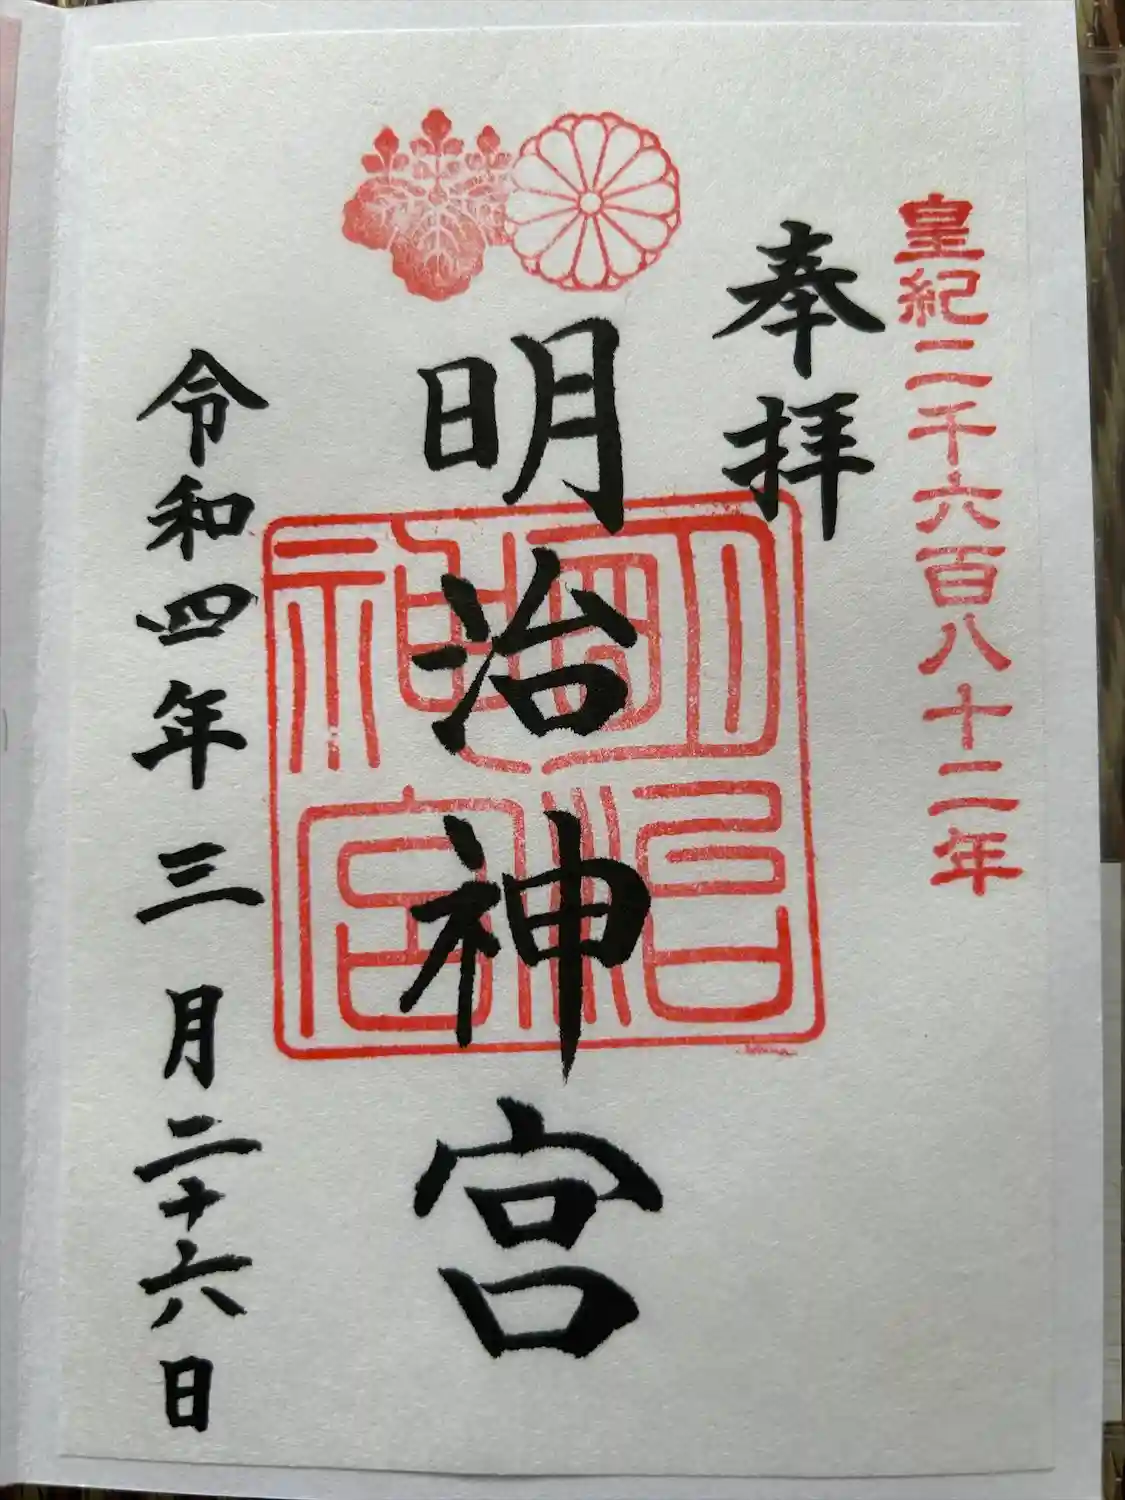 皇紀二千六百八十二年
奉拝
明治神宮
明治神宮
令和四年三月二十六日